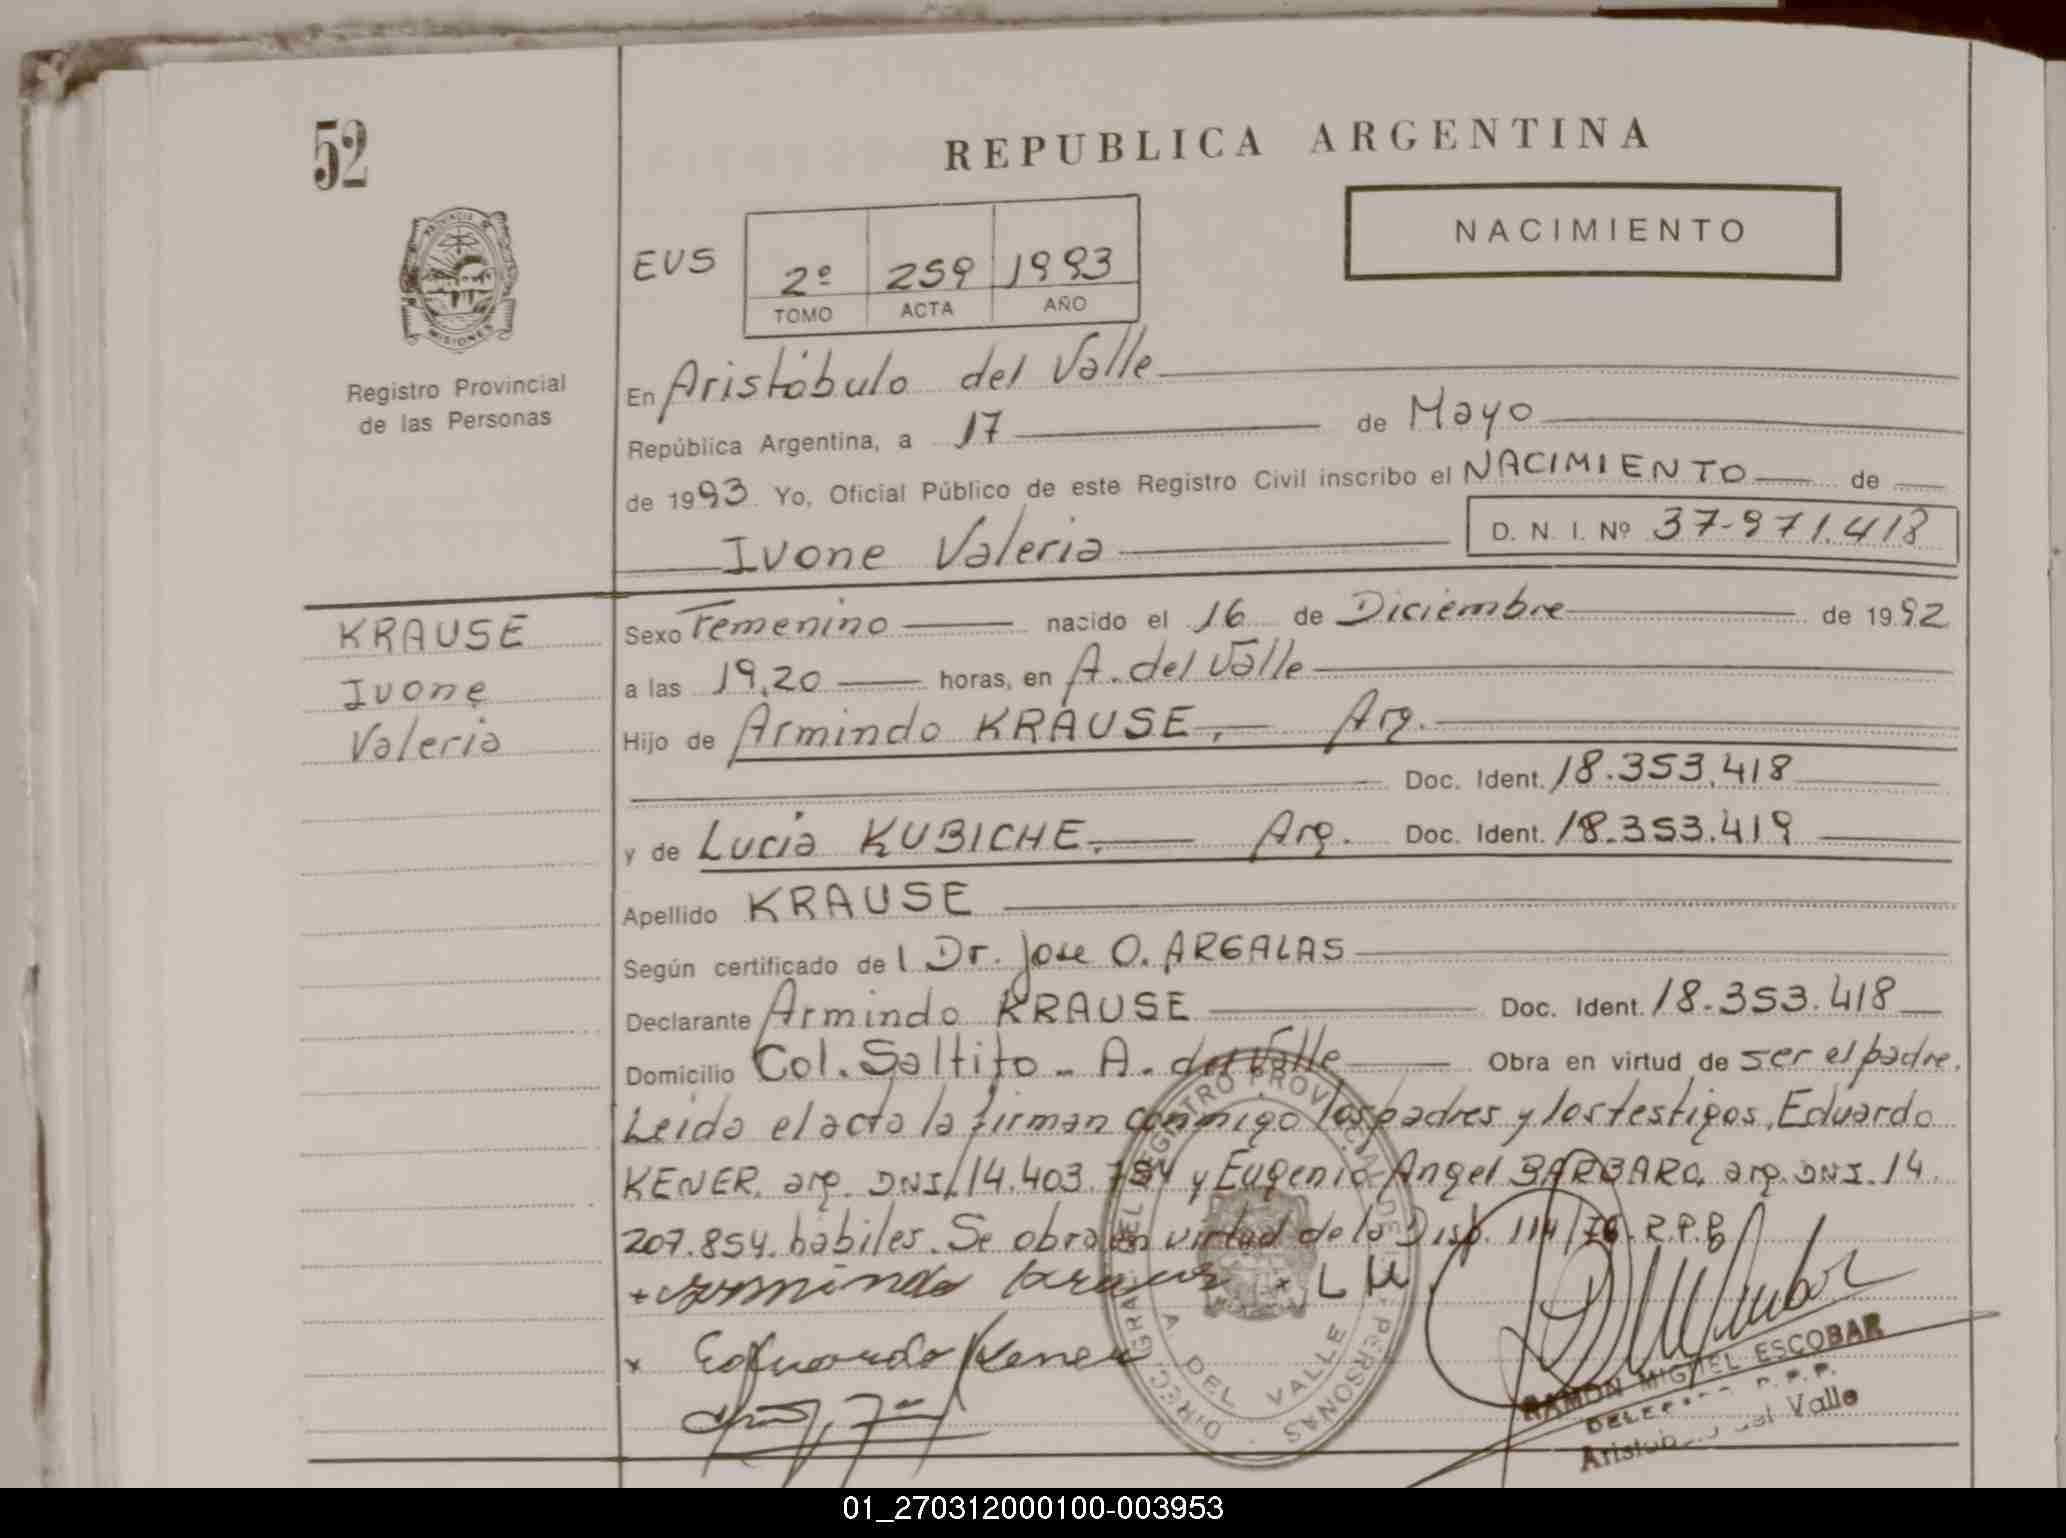 52
REPUBLICA ARGENTINA
NACIMIENTO
PROVINCIA DE MISIONES
EVS
2º 259 1993
TOMO ACTA AÑO
Registro Provincial
de las Personas
En Aristóbulo del Valle
República Argentina, a 17 de Mayo
de 1993. Yo, Oficial Público de este Registro Civil inscribo el NACIMIENTO de
Ivone Valeria D. N. I. Nº 37-971.418
KRAUSE
Ivone
Valeria
Sexo Femenino nacido el 16 de Diciembre de 1992
a las 19,20 horas, en A. del Valle
Hijo de Armindo KRAUSE, Arg.
Doc. Ident. 18.353.418
y de Lucia KUBICHE, Arg. Doc. Ident. 18.353.419
Apellido KRAUSE
Según certificado del Dr. Jose O. ARGALAS
Declarante Armindo KRAUSE Doc. Ident. 18.353.418
Domicilio Col. Saltito - A. del Valle Obra en virtud de ser el padre.
Leida el acta la firman conmigo los padres y los testigos, Eduardo
KENER, arg. DNI. 14.403.784 y Eugenio Angel BARBARO, arg. DNI. 14
207.854. habiles. Se obra en virtud de la Disp. 114/76. R.P.P
Armindo Krause
Eduardo Kener
DIREC. GRAL. DEL REGISTRO PROVINCIAL DE LAS PERSONAS
A DEL VALLE
RAMON MIGUEL ESCOBAR
R.P.P.
del Valle
01_270312000100-003953